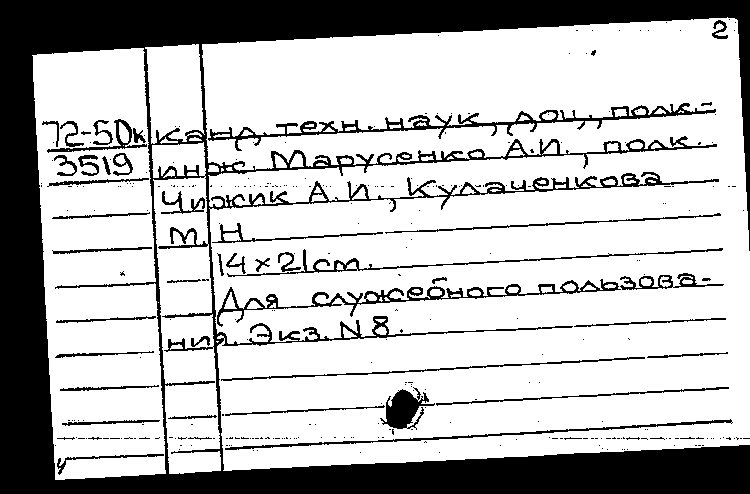 2
72-50к канд. техн. наук, доц., полк.-
3519 инж. Марусенко А.И., полк.
Чижик А.И., Кулаченкова
М.Н.
14×21 см.
Для служебного пользова-
ния. Экз. N 8.